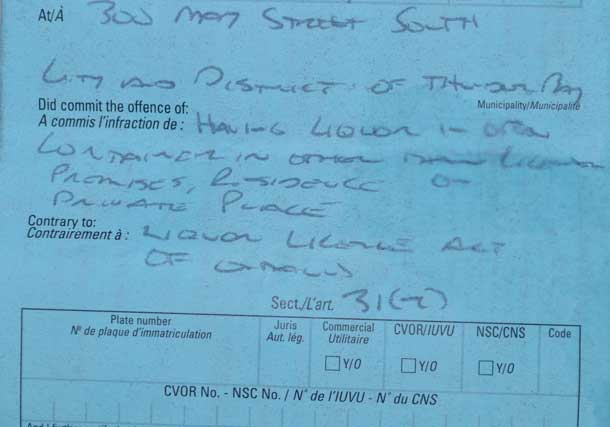 At/À 300 MAY STREET SOUTH
CITY AND DISTRICT OF THUNDER BAY
Municipality/Municipalité
Did commit the offence of:
A commis l'infraction de : HAVING LIQUOR IN OPEN
CONTAINER IN OTHER THAN LICENCED
PREMISES, RESIDENCE OR
PRIVATE PLACE
Contrary to:
Contrairement à : LIQUOR LICENCE ACT
OF ONTARIO
Sect./L'art. 31(2)
Plate number
Nº de plaque d'immatriculation
Juris
Aut. lég.
Commercial
Utilitaire
Y/O
CVOR/IUVU
Y/O
NSC/CNS
Y/O
Code
CVOR No. - NSC No. / N° de l'IUVU - N° du CNS